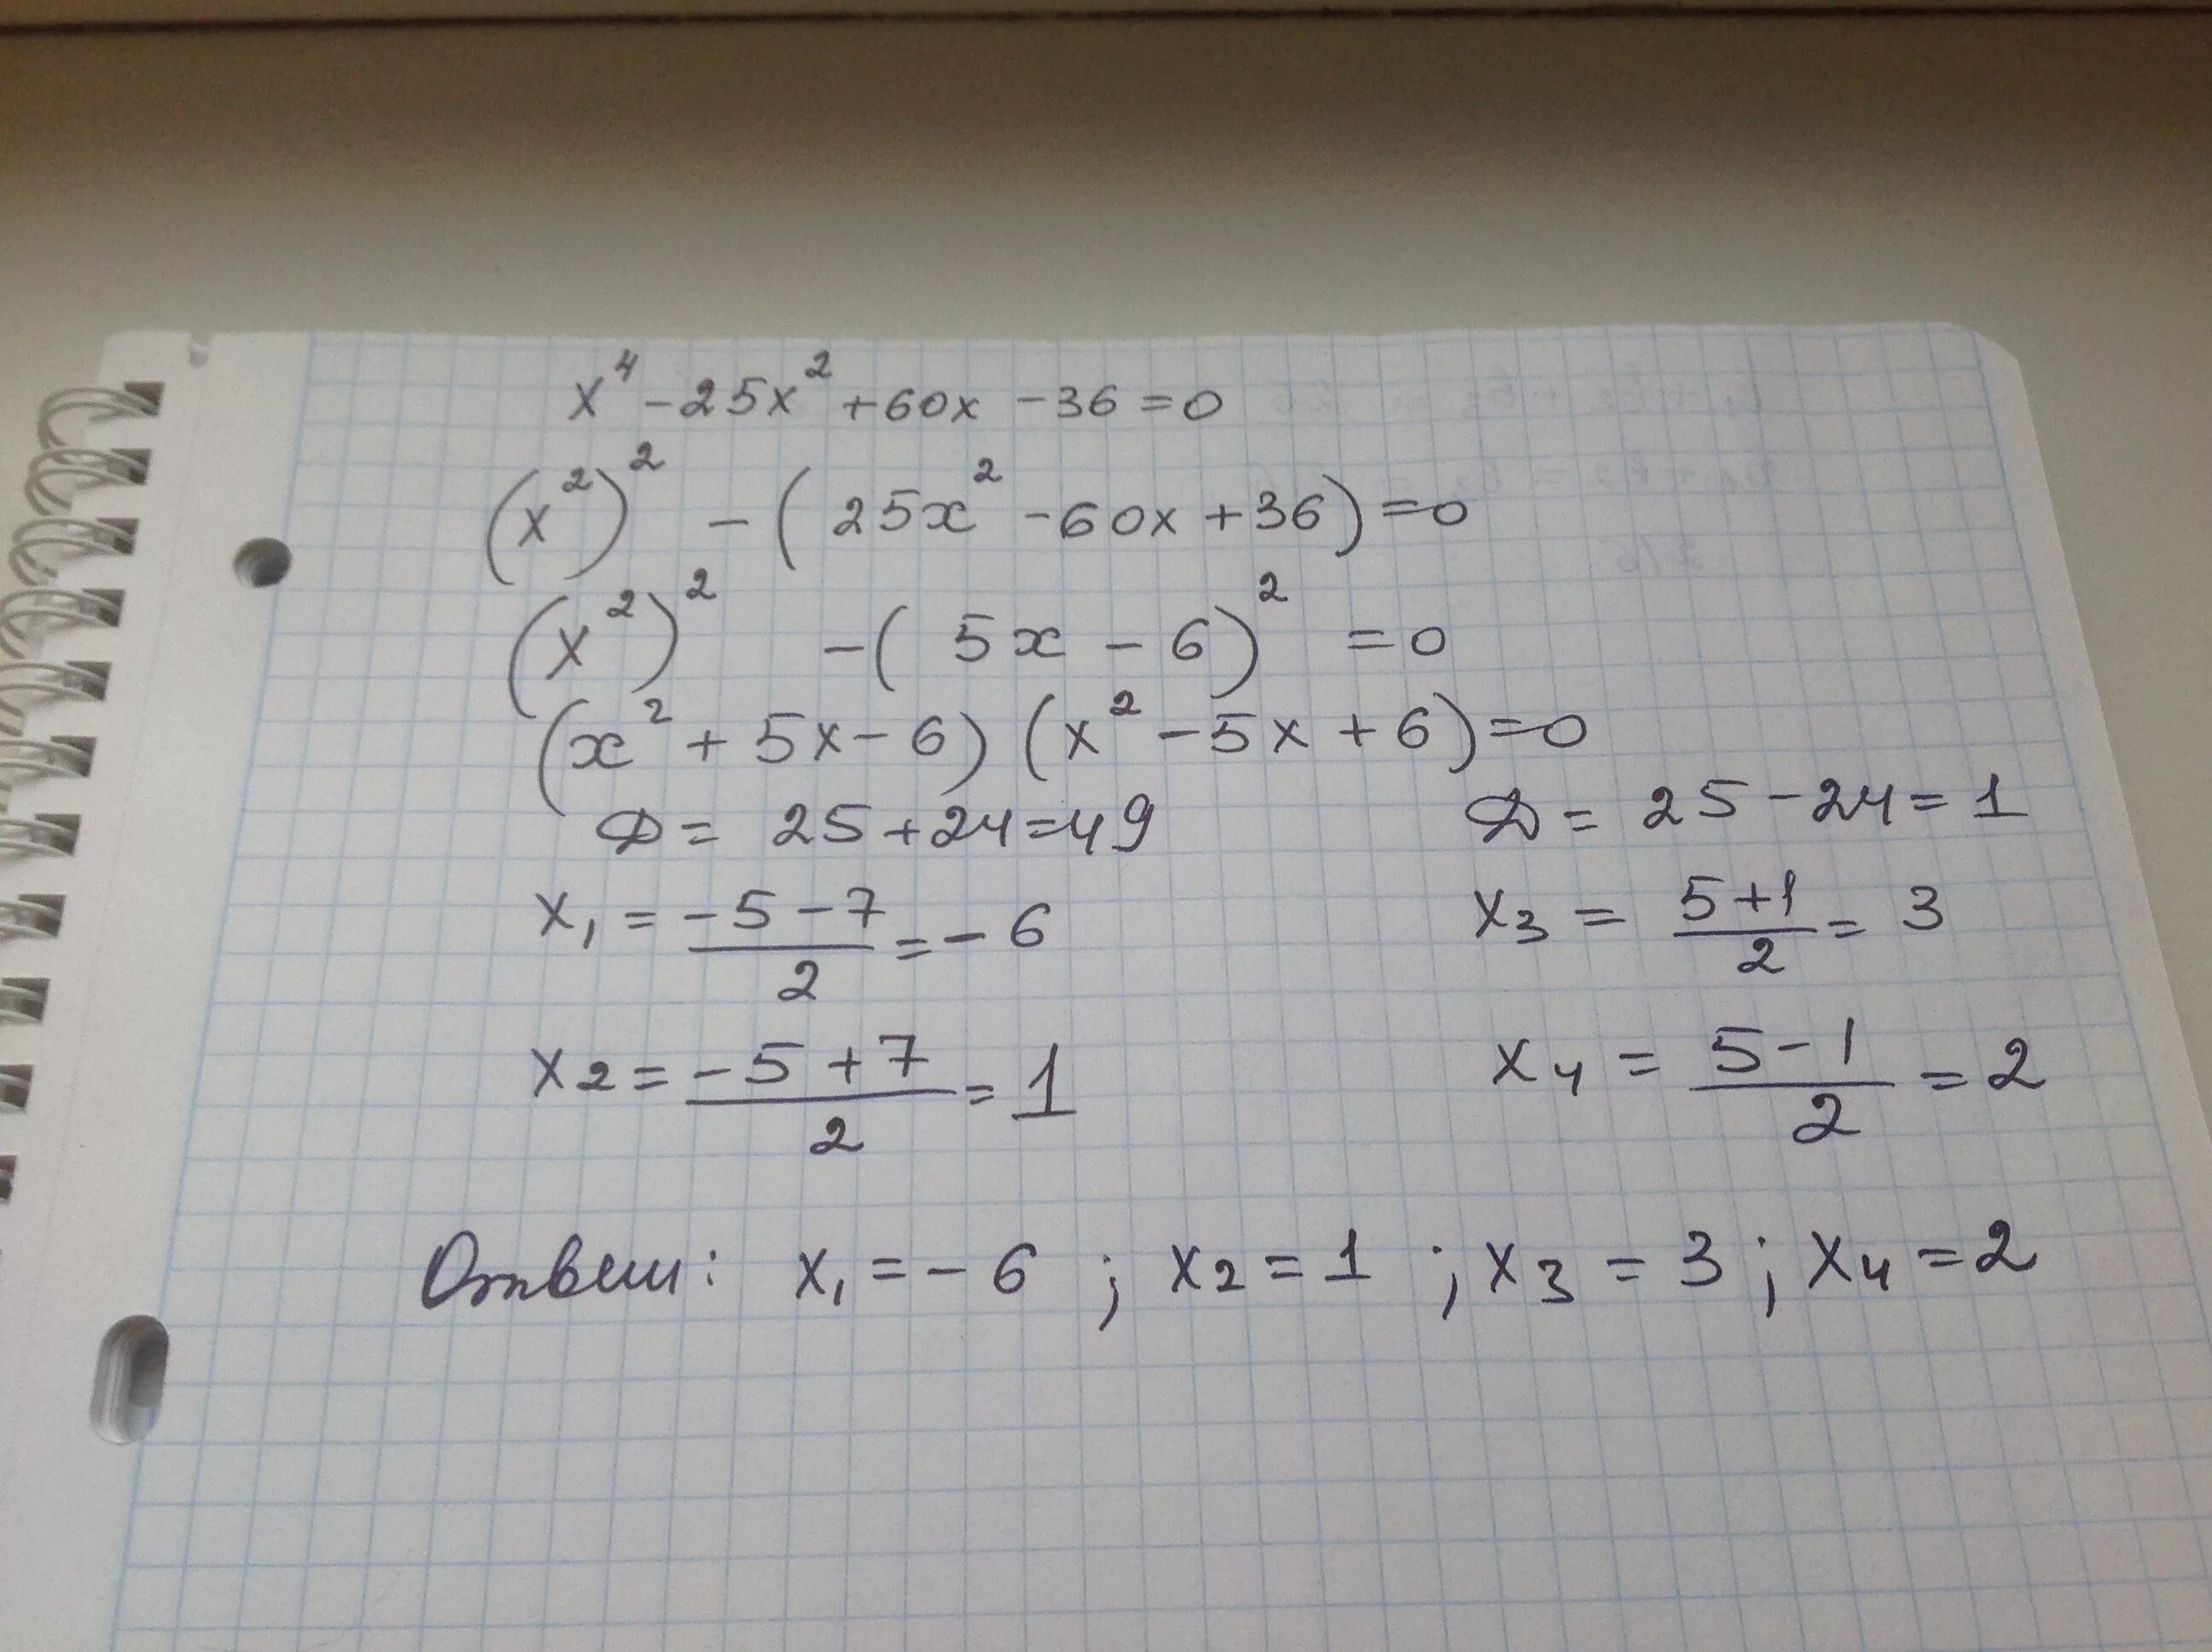 x⁴ - 25x² + 60x - 36 = 0
(x²)² - (25x² - 60x + 36) = 0
(x²)² - (5x - 6)² = 0
(x² + 5x - 6) (x² - 5x + 6) = 0
D = 25 + 24 = 49
x₁ = (-5 - 7)/2 = -6
x₂ = (-5 + 7)/2 = 1
D = 25 - 24 = 1
x₃ = (5 + 1)/2 = 3
x₄ = (5 - 1)/2 = 2
Ответ: x₁ = -6 ; x₂ = 1 ; x₃ = 3 ; x₄ = 2